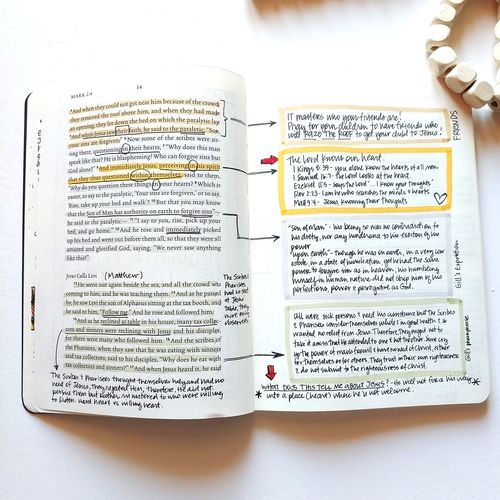 MARK 2:4
14
"And when they could not get near him because of the crowd,
they removed the roof above him, and when they had made
an opening, they let down the bed on which the paralytic lay.
And when Jesus saw their faith, he said to the paralytic, "Son,
your sins are forgiven." Now some of the scribes were sit-
ting there, questioning in their hearts, "Why does this man
speak like that? He is blaspheming! Who can forgive sins but
God alone?" And immediately Jesus, perceiving in his spirit
that they thus questioned within themselves, said to them,
"Why do you question these things in your hearts? Which is
easier, to say to the paralytic, 'Your sins are forgiven,' or to say,
'Rise, take up your bed and walk'? But that you may know
that the Son of Man has authority on earth to forgive sins"—
he said to the paralytic— "I say to you, rise, pick up your
bed, and go home." And he rose and immediately picked
up his bed and went out before them all, so that they were all
amazed and glorified God, saying, "We never saw anything
like this!"
Jesus Calls Levi (Matthew)
He went out again beside the sea, and all the crowd was
coming to him, and he was teaching them. And as he passed
by, he saw Levi the son of Alphaeus sitting at the tax booth, and
he said to him, "Follow me." And he rose and followed him.
And as he reclined at table in his house, many tax collec-
tors and sinners were reclining with Jesus and his disciples,
for there were many who followed him. And the scribes of
the Pharisees, when they saw that he was eating with sinners
and tax collectors, said to his disciples, "Why does he eat with
tax collectors and sinners?" And when Jesus heard it, he said
The Scribes
& Pharisees
had no
seat at
Jesus
table, they
were only
observers.
The Scribes & Pharisees thought themselves holy and had no
need of Jesus, they rejected Him, therefore, He did not
pursue them but rather, ministered to who were willing
to listen. Hard heart vs. willing heart.
IT matters who your friends are!
Pray for your children to have friends who
will RAZE The ROOF to get your child to Jesus!
FRIENDS
The Lord knows our heart.
1 Kings 8:39 - you alone know the hearts of all men.
1 Samuel 16:7 - The Lord looks at the heart
Ezekiel 11:5 - says the Lord "...I know your thoughts"
Rev 2:23 - I am He who searches the minds & hearts
Matt 9:4 - Jesus, knowing their thoughts
"Son of Man" - his being so was no contradiction to
his deity, nor any hinderance to his exertion of his
power.
"upon earth" - though he was on earth, in a very low
estate, in a state of humiliation, yet he had the same
power to forgive sin as in heaven; his humbling
himself in human nature did not strip him of his
perfections, power & prerogative as God.
Gill's Exposition
All were sick persons & need his assistance but the Scribes
& Pharisees consider themselves whole & in good health & so
wanted no relief from Jesus. Therefore, they ought not to
take it amiss that He attended to one & not the other. Some cry
up the power of man's freewill & have no need of Christ, either
for themselves or for others. They trust in their own righteousness
& do not submit to the righteousness of Christ.
Gill's paraphrase
WHAT DOES THIS TELL ME ABOUT JESUS? - He will not force his way
* into a place (heart) where he is not welcome. *